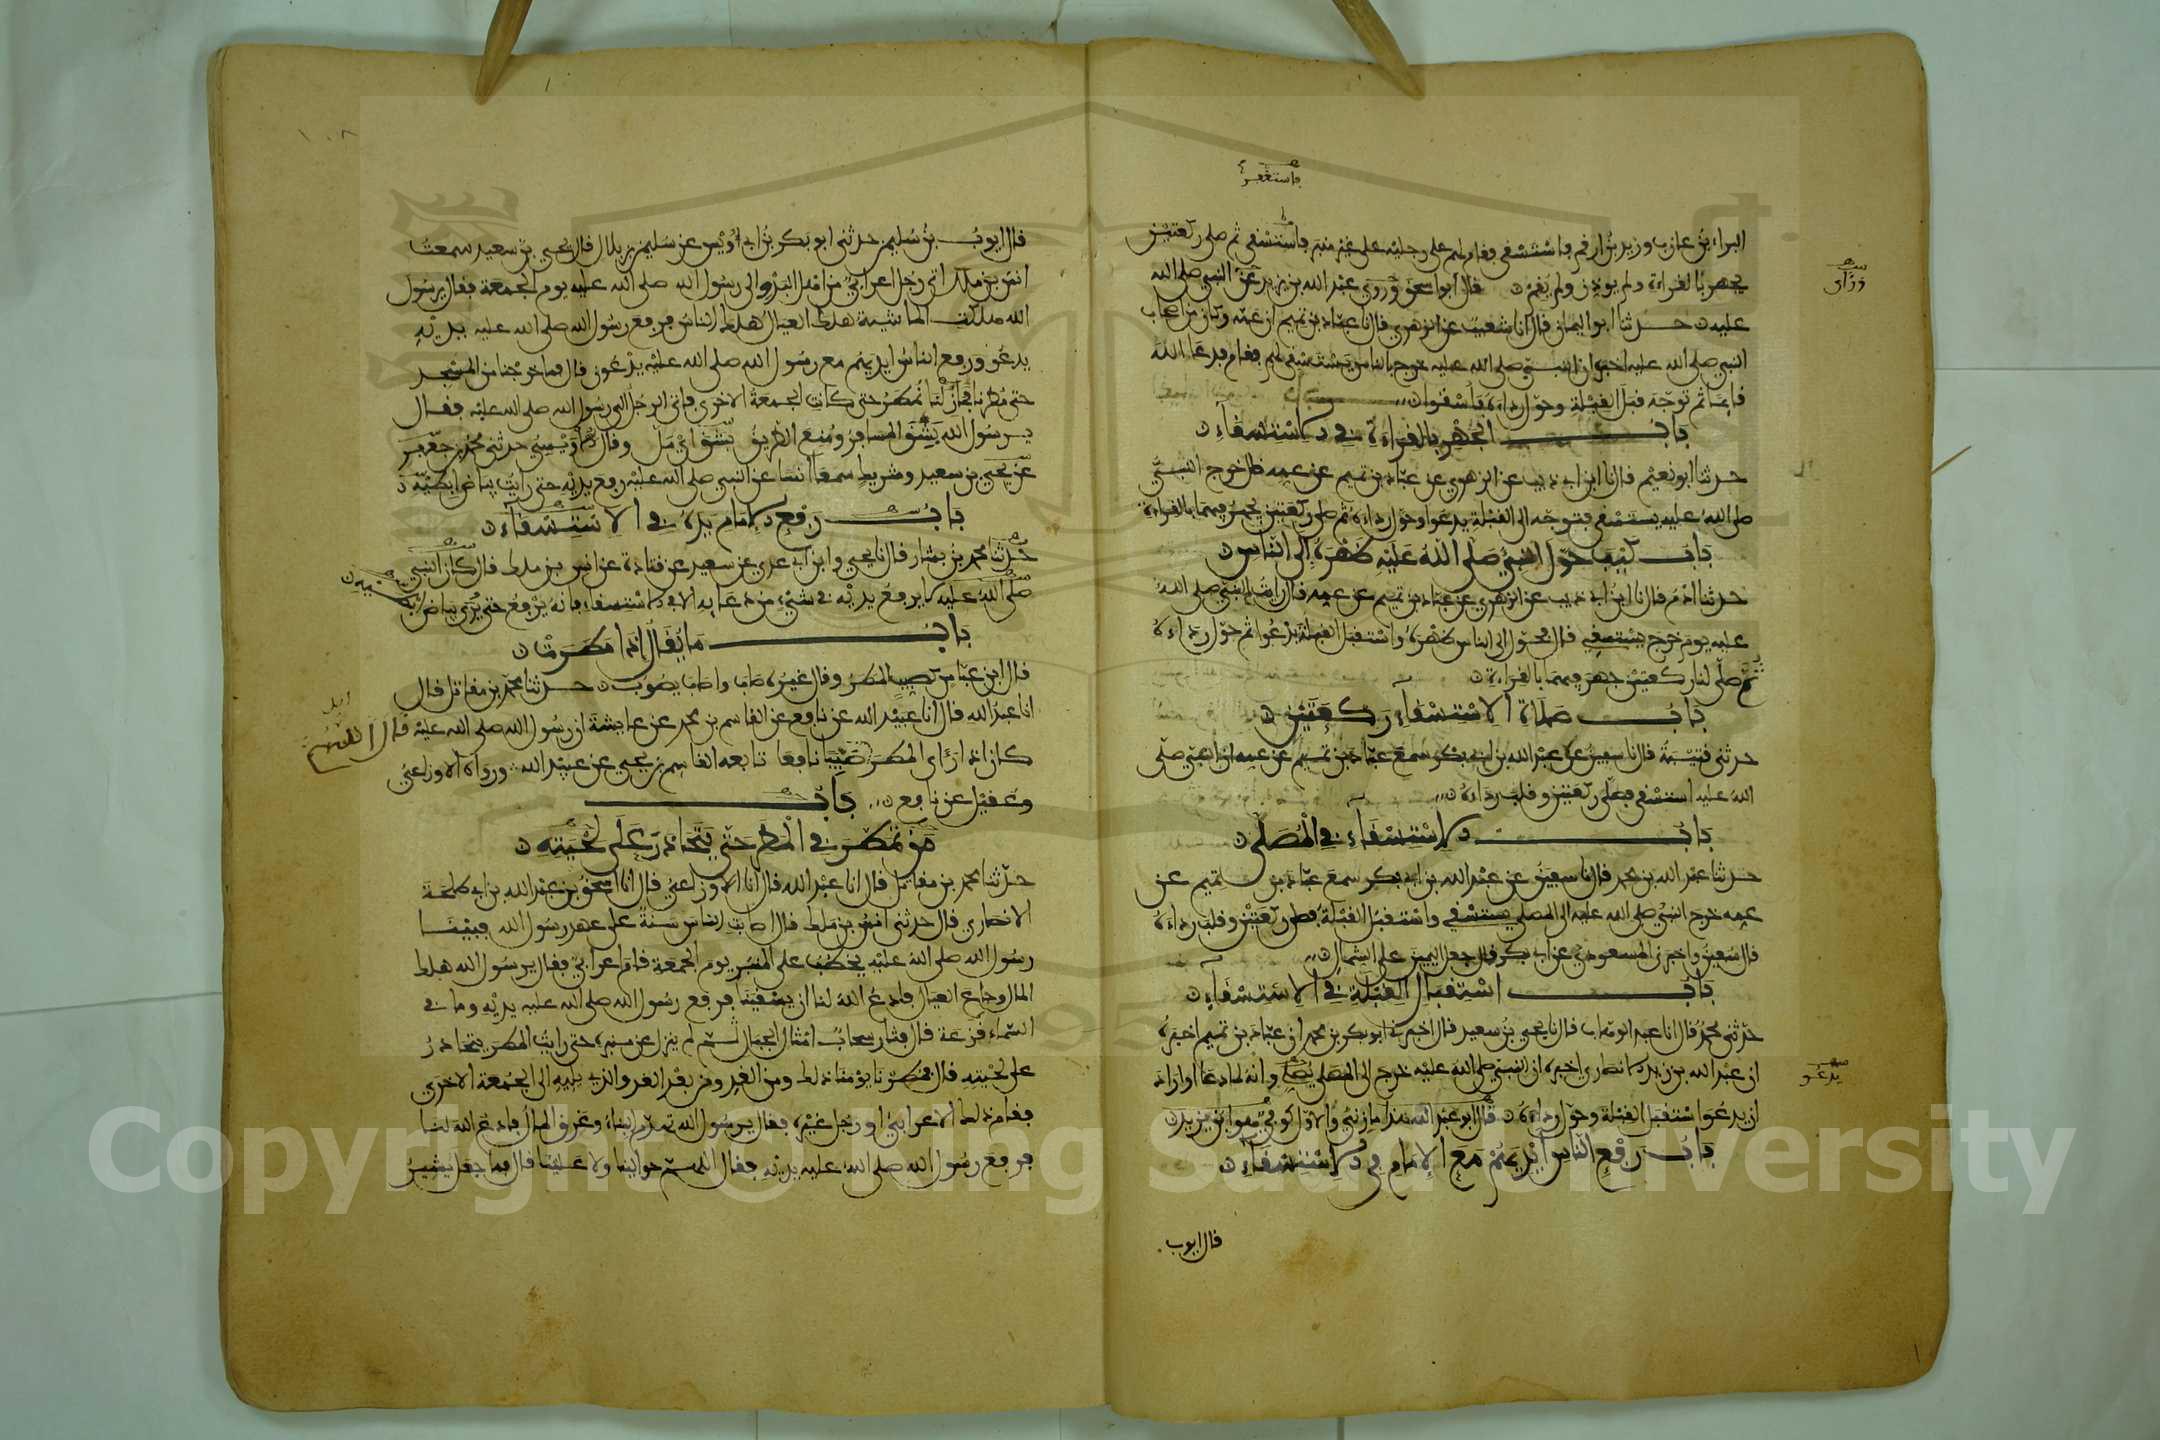 فاستغفر
البراء بن عازب وزيد بن ارقم فاستسقى فقام لهم على رجليه على غير منبر فاستسقى ثم صلى ركعتين
يجهر بالقراءة ولم يوذن ولم يقم قال ابو اسحق وروى عبد الله بن يزيد عن النبي صلى الله
ورأى
عليه حدثنا ابو اليمان قال انا شعيب عن الزهري قال نا عباد بن تميم ان عمه وكان من اصحاب
النبي صلى الله عليه اخبره ان النبي صلى الله عليه خرج بالناس يستسقي لهم فقام فدعا الله
قايما ثم توجه قبل القبلة وحول رداءه فاسقوا
باب الجهر بالقراءة في الاستسقاء
حدثنا ابو نعيم قال نا ابن ابي ذيب عن الزهري عن عباد بن تميم عن عمه قال خرج النبي
صلى الله عليه يستسقي فتوجه الى القبلة يدعوا وحول رداءه ثم صلى ركعتين يجهر فيهما بالقراءة
باب كيف حول النبي صلى الله عليه ظهره الى الناس
حدثنا ادم قال نا ابن ابي ذيب عن الزهري عن عباد بن تميم عن عمه قال رايت النبي صلى الله
عليه يوم خرج يستسقي قال فحول الى الناس ظهره واستقبل القبلة يدعوا ثم حول رداءه
ثم صلى لنا ركعتين جهر فيهما بالقراءة
باب صلاة الاستسقاء ركعتين
حدثني قتيبة قال نا سفين عن عبد الله بن ابي بكر سمع عباد بن تميم عن عمه ان النبي صلى
الله عليه استسقى فصلى ركعتين وقلب رداءه
باب الاستسقاء في المصلى
حدثنا عبد الله بن محمد قال نا سفين عن عبد الله بن ابي بكر سمع عباد بن تميم عن
عمه خرج النبي صلى الله عليه الى المصلى يستسقي واستقبل القبلة فصلى ركعتين وقلب رداءه
قال سفين واخبرني المسعودي عن ابي بكر قال جعل اليمين على الشمال
باب استقبال القبلة في الاستسقاء
حدثني محمد قال انا عبد الوهاب قال نا يحيى بن سعيد قال اخبرني ابو بكر بن محمد ان عباد بن تميم اخبره
ان عبد الله بن زيد الانصاري اخبره ان النبي صلى الله عليه خرج الى المصلى يصلي وانه لما دعا او اراد
يدعو
ان يدعوا استقبل القبلة وحول رداءه قال ابو عبد الله هذا مازني والاول كوفي هو ابن يزيد
باب رفع الناس ايديهم مع الامام في الاستسقاء
قال ايوب
١٠٨
قال ايوب بن سليمن حدثني ابو بكر بن ابي اويس عن سليمن بن بلال قال يحيى بن سعيد سمعت
انس بن ملك اتى رجل اعرابي من اهل البدو الى رسول الله صلى الله عليه يوم الجمعة فقال يرسول
الله هلكت الماشية هلك العيال هلك الناس فرفع رسول الله صلى الله عليه يديه
يدعو ورفع الناس ايديهم مع رسول الله صلى الله عليه يدعون قال فما خرجنا من المسجد
حتى مطرنا فما زلنا نمطر حتى كانت الجمعة الاخرى فاتى الرجل الى رسول الله صلى الله عليه فقال
يرسول الله بشق المسافر ومنع الطريق بشق اي مل وقال الاويسي حدثني محمد بن جعفر
عن يحيى بن سعيد وشريك سمعا انسا عن النبي صلى الله عليه رفع يديه حتى رايت بياض ابطيه
باب رفع الامام يده في الاستسقاء
حدثنا محمد بن بشار قال نا يحيى وابن ابي عدي عن سعيد عن قتادة عن انس بن ملك قال كان النبي
صلى الله عليه لا يرفع يديه في شيء من دعايه الا في الاستسقاء فانه يرفع حتى يرى بياض
باب ما يقال اذا مطرت
قال ابن عباس كصيب المطر وقال غيره صاب واصاب يصوب حدثنا محمد بن مقاتل قال
انا عبد الله قال انا عبيد الله عن نافع عن القاسم بن محمد عن عايشة ان رسول الله صلى الله عليه
قال اللهم
كان اذا راى المطر صيبا نافعا تابعه القاسم بن يحيى عن عبيد الله ورواه الاوزاعي
وعقيل عن نافع باب
من تمطر في المطر حتى يتحادر على لحيته
حدثنا محمد بن مقاتل قال انا عبد الله قال انا الاوزاعي قال انا اسحق بن عبد الله بن ابي طلحة
الانصاري قال حدثني انس بن ملك قال اصابت الناس سنة على عهد رسول الله فبينا
رسول الله صلى الله عليه يخطب على المنبر يوم الجمعة قام اعرابي فقال يرسول الله هلك
المال وجاع العيال فادع الله لنا ان يسقينا فرفع رسول الله صلى الله عليه يديه وما في
السماء قزعة قال فثار سحاب امثال الجبال ثم لم ينزل عن منبره حتى رايت المطر يتحادر
على لحيته قال فمطرنا يومنا ذلك ومن الغد ومن بعد الغد والذي يليه الى الجمعة الاخرى
فقام ذلك الاعرابي او رجل غيره فقال يرسول الله تهدم البناء وغرق المال فادع الله لنا
فرفع رسول الله صلى الله عليه يديه فقال اللهم حوالينا ولا علينا قال فما جعل يشير
Copyright © King Saud University